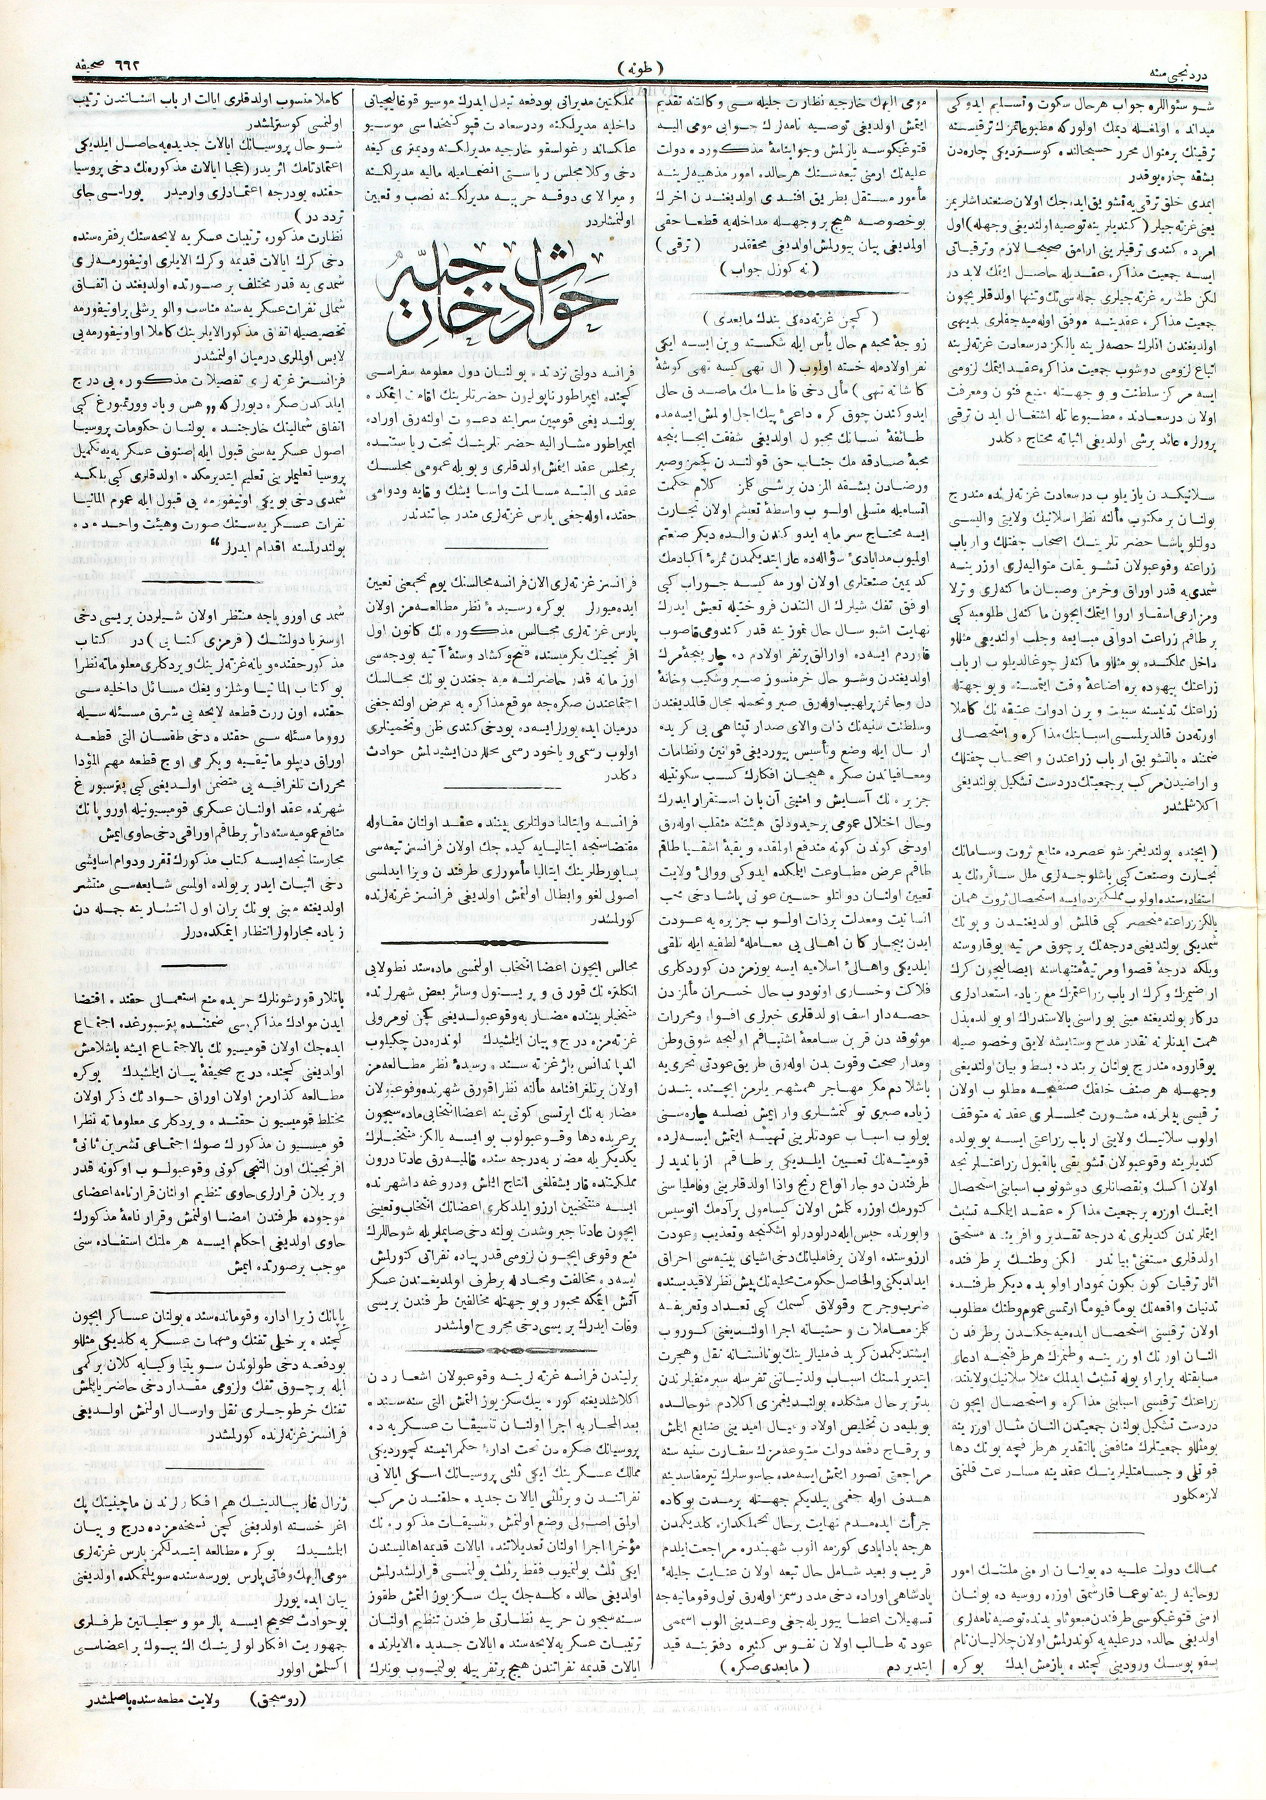 دردنجی سنه
( طونه )
٦٦٢ صحیفه
شو سئواللره جواب هرحال سکوت و تسلیم ایدوکی
میدانده اولمغله دیمك اولورکه مطبوعاتمزك ترقیسنه
ترقینك برمنوال محرر حسبحالنده کوستردیکی چاره‌دن
بشقه چاره یوقدر
ایمدی خلق ترقی‌یه تشویق ایده‌جك اولان صنعتداشلریمز
یعنی غزته‌جیلر ( کندیلرینه توصیه اولندیغی وجهله ) اول
امرده کندی ترقیلرینی ارامق صحیحا لازم و ترقیاتی
ایسه جمعیت مذاکره عقدیله حاصل ایتمك لابددر
لکن طشره غزته‌جیلری جمله‌سی تك و تنها اولدقلریچون
جمعیت مذاکره عقدینه موفق اوله‌میه‌جقلری بدیهی
اولدیغندن انلرك حصه‌لرینه یالکز درسعادت غزته‌لرینه
اتباع لزومی دوشوب جمعیت مذاکره عقد ایتمك لزومی
ایسه مرکز سلطنت و هر جهتله منبع فنون و معرفت
اولان درسعادتده مطبوعاتله اشتغال ایدن ترقی
پرورلره عائد برشی اولدیغی اثباته محتاج دکلدر
سلانیکدن یازیلوب درسعادت غزته‌لرنده مندرج
بولنان بر مکتوب مآلنه نظرا سلانیك ولایتی والیسی
دولتلو پاشا حضرتلرینك اصحاب چفتلك و ارباب
زراعته وقوعبولان تشویقات متوالیه‌لری اوزرینه
شمدی‌یه قدر اوراق و خرمن و صپان ماکنه‌لری و ترلا
ومزارعی اسقا و اروا ایتمك ایچون ماکنه‌لی طلومبه کبی
بر طاقم زراعت ادواتی مبایعه و جلب اولندیغی مثللو
داخل مملکتده بو مثللو ماکنه‌لر چوغالدیلوب ارباب
زراعتك بیهوده یره اضاعۀ وقت ایتمسنه و بوجهتله
اورته‌دن قالدیرلمسی اسبابنك مذاکره و استحصالی
ضمننده بالتشویق ارباب زراعتدن و اصحاب چفتلك
و اراضیدن مرکب بر جمعیتك دردست تشکیل بولندیغی
اکلاشلمشدر
( ایچنده بولندیغمز شو عصرده منابع ثروت و سامانك
تجارت و صنعت کبی باشلوجه‌لری ملل سائره‌نك ید
استفاده‌سنده اولوب مملکتمزده ایسه استحصال ثروت همان
یالکز زراعته منحصر کبی قالمش اولدیغندن و بونك
شمدیکی بولندیغی درجه‌نك بر چوق مرتبه یوقاروسنه
وبلکه درجۀ قصوا و مرتبۀ منتهاسنه ایصالیچون کرك
اراضیمزك و کرك ارباب زراعتمزك مع زیاده استعدادلری
درکار بولندیغنه مبنی بوراسنی بالاستدراك اویولده بذل
همت ایدنلر نه قدر مدح و ستایشه لایق و خصوصیله
یوقاروده مندرج بولنان بر بندده بسط و بیان اولندیغی
وجهله هر صنف خلقك صنفنجه مطلوب اولان
ترقیسی یه‌لرنده مشورت مجلسلری عقدنه متوقف
اولوب سلانیك ولایتی ارباب زراعتی ایسه بویولده
کندیلرینه وقوعبولان تشویقی بالقبول زراعتلرنجه
اولان اکسك و نقصانلری دوشونوب اسبابنی استحصال
ایتمك اوزره بر جمعیت مذاکره عقد ایتمکه تشبث
ایتملرندن کندیلری نه درجه تقدیر و افرینه مستحق
اولدقلری مستغنی بیاندر لکن وطنمزك بر طرفنده
اثار ترقیات کون بکون نمودار اولوبده دیکر طرفنده
تدنیات واقعه‌نك یوما فیوما ارتمسی عموم وطنك مطلوب
اولان ترقیسنی استحصال ایده‌میه‌جکندن بر طرفدن
النان اورنك اوزرینه وطنمزك هر طرفنجه ادعای
مسابقتله برابر او یوله تشبث ایدلمك مثلا سلانیك ولایتنده
زراعتك ترقیسی اسبابنی مذاکره و استحصال ایچون
دردست تشکیل بولنان جمعیتدن النان مثال اوزرینه
بومثللو جمعیتلرك منافعنی بالتقدیر هر طرفجه بونك دها
قوتلی و جسامتلیلرینك عقدینه مسارعت قلنمق
لازمکلور
ممالك دولت علیه‌ده بولنان ارمنی ملتنك امور
روحانیه‌لرینه نوعما قارشمق اوزره روسیه‌ده بولنان
ارمنی قتوغیکوسی طرفندن مبعوثلر و یدلرینه توصیه‌نامه‌لری
اولدیغی حالده درعلیه‌یه کوندرلمش اولان چلالیان نام
پسقوپوسك ورودینی کچنده یازمش ایدك بوکره
مومی الیهك خارجیه نظارت جلیله‌سی و کالتنه تقدیم
ایتمش اولدیغی توصیه نامه‌لرك جوابی مومی الیه
قتوغیکوسه یازلمش و جوابنامۀ مذکورده دولت
علیه‌نك ارمنی تبعه‌سنك هر حالده امور مذهبیه‌لرینه
مأمور مستقل بطریق افندی اولدیغندن اخرك
بو خصوصه هیچ بر وجهله مداخله‌یه قطعا حقی
اولدیغی بیان بیورلمش اولدیغی محققدر ( ترقی )
( نه کوزل جواب )
( کچن غزته‌ده‌کی بندك مابعدی )
زوجۀ محبه‌م حال یأس ایله شکسته و بن ایسه ایکی
نفر اولادمله خسته اولوب ( ال تهی کیسه تهی کوشۀ
کاشانه تهی ) مآلی دخی فاملیامك ماصدق حالی
ایدوکندن چوق کره داعئ پیك اجل اولمش ایسه‌مده
طائفۀ نسانك مجبول اولدیغی شفقت ایجابنجه
محبۀ صادقه‌مك جناب حق قولندن کچمز و صبر
ورضادن بشقه المزدن برشی کلمز کلام حکمت
اتسامیله متسلی اولوب واسطۀ تعیشم اولان تجارت
ایسه محتاج سرمایه ایدوکندن والده دیکر صنعتم
اولمیوب مدابادئ سؤاله‌ده عار ایتدیکمدن ثمرۀ اکبادمك
کدیمین صنعتلری اولان اورمه کیسه جوراب کبی
اوفق تفك شیلرك الندن فروختیله تعیش ایدرك
نهایت اشبو سال حال تموزینه قدر کندومی قاصوب
قاوردم ایسه‌ده اوارالق بر نفر اولادم ده چار پنجۀ مرك
اولدیغندن وشو حال خرمنسوز صبر و شکیب و خانۀ
دل و جانمز پرلهیب اوله‌رق صبر و تحمله مجال قالمدیغندن
وسلطنت سنیه‌نك ذات والای صدارتپناهی بی کریده
ارسال ایله وضع و تأسیس بیوردیغی قوانین و نظامات
ومعافیاتدن صکره هیجان افکارك کسب سکونتیله
جزیره‌نك آسایش و امنیتی آن بان استقرار ایدرك
وحال اختلال عمومی بر حیدودلق هیئتنه منقلب اوله‌رق
اودخی کوندن کونه مندفع اولمقده و بقیۀ اشقیا طاقم
طاقم عرض مطاوعت ایتمکده ایدوکی ووالئ ولایت
تعیین اولنان دولتلو حسین عونی پاشا دخی محب
انسانیت و معدلت بر ذات اولوب جزیره‌یه عودت
ایدن بیچارکان اهالی بی معاملۀ لطفیه ایله تلقی
ایلدیکی و اهالئ اسلامیه ایسه یوزمزدن کوردکلری
فلاکت و خساری اونودوب حال خسران مآلمزدن
حصه‌دار اسف اولدقلری خبرلری افواه و محررات
موثوقه‌دن قرین سامعۀ اشتیاقم اولیجه شوق وطن
ومدار صحت وقوت بدن اوله‌رق طریق عودتی تحری‌یه
باشلادم مکر مهاجر همشهریلرمز ایچنده بندن
زیاده صبری توکنمشلری وار ایمش نصلسه چاره‌سنی
بولوب اسباب عودتلرینی تهیئه ایتمش ایسه‌لرده
قومیته‌نك تعیین ایلدیکی بر طاقم از باندیدلر
طرفندن دوچار انواع رنج و اذا اولدقلرینی و فاملیا سنی
کتورمك اوزره کلمش اولان کیسامولی بر آدمك اتوسیس
واپورنده حبس ایله درلودرلو اشکنجه وتعذیب و عودت
ارزوسنده اولان بر فاملیانك دخی اشیای بیتیه‌سی احراق
ایدلدیکنی والحاصل حکومت محلیه‌نك پیش نظر لاقیدسنده
ضرب و جرح و قولاق کسمك کبی تعداد و تعریفه
کلمز معاملات وحشیانه اجرا اولندیغنی کوروب
ایشتدیکمدن کریدی فدملیارینك یونانستانه نقل و هجرت
ایتدیرلمنك اسباب ولدنیاتنی تفرسله سیر منفیلردن
بدتر بر حال مشکلده بولندیغمزی اکلادم شو حالده
بو بلیه‌دن تخلیص اولاد و عیال امیدینی ضایع ایتمش
و برقاچ دفعه دولت متبوعه‌مزك سفارت سنیه‌سنه
مراجعتی تصور ایتمش ایسه‌مده جاسوسلرك تیر مفاسدینه
هدف اوله‌جغمی بیلدیکم جهتله بر مدت بوکاده
جرأت ایده‌مدم نهایت بر حال تحمل‌کداز کلدیکمدن
هرچه بادابادی کوزمه الوب شهبندره مراجعت ایلدم
قریب و بعید شامل حال تبعه اولان عنایت جلیلۀ
پادشاهی اوراده دخی مددرسمز اوله‌رق نول و قومانیه‌جه
تسهیلات اعطا بیوریله‌جغی وعدینی الوب اسممی
عودته طالب اولان نفوس کثیره دفترینه قید
ایتدیردم ( مابعدی صکره )
مملکتین مدیرانی بودفعه تبدل ایدرك موسیو قوغالنیچانی
داخلیه مدیرلکنه و درسعادت قپو کتخداسی موسیو
علکساندر غولسقو خارجیه مدیرلکنه و دیمتری کیغه
دخی وکلا مجلس ریاستی انضمامیله مالیه مدیرلکنه
و میرالای دوقه حربیه مدیرلکنه نصب و تعیین
اولنمشلردر
حوادث خارجیه
فرانسه دولتی نزدنده بولنان دول معلومه سفراسی
کچنده ایمپراطور ناپولیون حضرتلرینك اقامت ایتمکده
بولندیغی قومپین سراینه دعوت اولنه‌رق اوراده
ایمپراطور مشارالیه حضرتلرینك تحت ریاستنده
بر مجلس عقد ایتمش اولدقلری و بویله عمومی مجلس
عقدی البته مسالمت و اسایشك وقایه و دوامی
حقنده اوله‌جغی پارس غزته‌لری مندرجاتندندر
فرانسز غزته‌لری الان فرانسه مجالسنك یوم تجمعنی تعیین
ایده‌میورلر بوکره رسیدۀ نظر مطالعه‌مز اولان
پارس غزته‌لری مجالس مذکوره‌نك کانون اول
افرنجینك یکرمیسنده فتح و کشاد و سنۀ آتیه بودجه‌سی
اوزمانه قدر حاضرلنه‌میه‌جغندن بونك مجالسك
اجتماعندن صکره‌جه موقع مذاکره‌یه عرض اولنه‌جغی
درمیان ایده‌یورلر ایسه‌ده بودخی کندی ظن و تخمینلری
اولوب رسمی و یاخود رسمی محللردن ایشیدلمش حوادث
دکلدر
فرانسه و ایتالیا دولتلری بیننده عقد اولنان مقاوله
مقتضاسنجه ایتالیایه کیده‌جك اولان فرانسز تبعه‌سی
پساپورطلرینك ایتالیا مأمورلری طرفندن ویزا ایدلمسی
اصولی لغو و ابطال اولنمش اولدیغی فرانسز غزته‌لرنده
کورلمشدر
مجالس ایچون اعضا انتخاب اولنمسی ماده‌سندن طولایی
انکلتره‌نك قورق و پریستول و سائر بعض شهرلرنده
منتخبلر بیننده مضاربه وقوعبولدیغی کچن نومرولی
غزته‌مزه درج و بیان ایلمشیدك لوندره‌دن چکیلوب
اندپاندانس باژ غزته‌سنده رسیدۀ نظر مطالعه‌مز
اولان بر تلغرافنامه مآلنه نظرا قورق شهرنده وقوعبولان
مضاربه‌نك ایرتسی کونی ینه اعضا انتخابی ماده‌سیچون
بر عربده دها وقوعبولوب بو ایسه یالکز منتخبلرك
یکدیکریله مضاربه درجه‌سنده قالمیه‌رق عادتا درون
مملکتده قاریشقلغی انتاج ایتمش و دروغده داشهرنده
ایسه منتخبین ارزو ایلدکلری اعضانك انتخاب و تعیینی
ایچون عادتا جبر و شدت یولنه دخی صاپملریله شو حاللرك
منع وقوعی ایچون لزومی قدر پیاده نفراتی کتورلمش
ایسه‌ده مخالفت و مجادله بر طرف اولمدیغندن عسکر
آتش ایتمکه مجبور و بوجهتله مخالفین طرفندن بریسی
وفات ایدرك بریسی دخی مجروح اولمشدر
برلیندن فرانسه غزته‌لرینه وقوعبولان اشعاردن
اکلاشلدیغنه کوره بیك سکز یوز التمش التی سنه‌سنده
بعد المحاربه اجرا اولنان تنسیقات عسکریه‌ده
پروسیانك صکره‌دن تحت ادارۀ حکمرانیسنه کچوردیکی
ممالك عسکرینك ایکی ثلثی پروسیانك اسکی ایالاتی
نفراتندن و بر ثلثی ایالات جدیده خلقندن مرکب
اولمق اصولی وضع اولنمش و تنسیقات مذکوره‌نك
مؤخرا اجرا اولنان تعدیلاتنده ایالات قدیمه اهالیسندن
ایکی ثلث بولنمیوب فقط بر ثلث بولنمسی قرارلشدرلمش
اولدیغی حالده کله‌جك بیك سکز یوز التمش طقوز
سنه‌سیچون حربیه نظارتی طرفندن تنظیم اولنان
ترتیبات عسکریه لایحه‌سنده ایالات جدیده الایلرنده
ایالات قدیمه نفراتندن هیچ بر نفر بیله بولنمیوب بونلرك
کاملا منسوب اولدقلری ایالت ارباب اسنانندن ترتیب
اولنمسی کوسترلمشدر
شو حال پروسیانك ایالات جدیده‌یه حاصل ایلدیکی
اعتمادتامك اثریدر ( عجبا ایالات مذکوره‌نك دخی پروسیا
حقنده بودرجه اعتمادلری وارمیدر بوراسی جای
تردددر )
نظارت مذکوره ترتیبات عسکریه لایحه‌سنك بر فقره‌سنده
دخی کرك ایالات قدیمه و کرك الایلری اونیفورمه‌لری
شمدی‌یه قدر مختلف بر صورتده اولدیغندن اتفاق
شمالی نفرات عسکریه‌سنه مناسب و الویرشلی بر اونیفورمه
تخصیصیله اتفاق مذکور الایلرینك کاملا او اونیفورمه‌یی
لابس اولملری درمیان اولنمشدر
فرانسز غزته‌لری تفصیلات مذکوره‌یی درج
ایلدکدن صکره دیورلرکه „ هس و باد و ورتمبورغ کبی
اتفاق شمالینك خارجنده بولنان حکومات پروسیا
اصول عسکریه‌سنی قبول ایله صنوف عسکریه‌یه بتکمیل
پروسیا تعلیملرینی تعلیم ایتدیرمکده اولدقلری کبی بلکه
شمدی دخی بویکی اونیفورمه‌یی قبول ایله عموم المانیا
نفرات عسکریه‌سنك صورت و هیئت واحده‌ده
بولندرلمسنه اقدام ایدرلر “
شمدی اوروپاجه منتظر اولان شیلردن بریسی دخی
اوستریا دولتنك ( قرمزی کتابی ) در کتاب
مذکور حقنده ویانه غزته‌لرینك ویردکلری معلوماته نظرا
بو کتاب المانیا و شلزویغك مسائل داخلیه‌سی
حقنده اون درت قطعه لایحه‌یی شرق مسئله‌سیله
روما مسئله‌سی حقنده دخی طقسان التی قطعه
اوراق دیپلوماتیقیه و یکرمی اوچ قطعه مهم المؤدا
محررات تلغرافیه‌یی متضمن اولدیغی کبی پترسبورغ
شهرنده عقد اولنان عسکری قومیسیونیله اوروپانك
منافع عمومیه‌سنه دائر بر طاقم اوراقی دخی حاوی ایمش
مجارستانجه ایسه کتاب مذکورك تقرر و دوام اسایشی
دخی اثبات ایدر بر یولده اولمسی شایعه‌سی منتشر
اولدیغنه مبنی بونك بران اول انتشارینه جمله‌دن
زیاده مجارلولر انتظار ایتمکده درلر
پاتلار قورشونلرك حربده منع استعمالی حقنده اقتضا
ایدن موادك مذاکره‌سی ضمننده پترسبورغده اجتماع
ایده‌جك اولان قومیسیونك بالاجتماع ایشه باشلامش
اولدیغی کچنده درج صحیفۀ بیان ایلمشیدك بوکره
مطالعه‌کذارمز اولان اوراق حوادثك ذکر اولنان
مختلط قومیسیون حقنده ویردکلری معلوماته نظرا
قومیسیون مذکورك صوك اجتماعی تشرین ثانئ
افرنجینك اون التنجی کونی وقوعبولوب اوکونه قدر
ویریلان قراری حاوی تنظیم اولنان قرارنامه اعضای
موجوده طرفندن امضا اولنمش و قرارنامۀ مذکورك
حاوی اولدیغی احکام ایسه هر ملتك استفاده‌سنی
موجب بر صورتده ایمش
پاپانك زیر اداره و قومانده‌سنده بولنان عساکر ایچون
کچنده بر خیلی تفنك و مهمات عسکریه کلدیکی مثللو
بودفعه دخی طولوندن سویتیا وکیایه کلان بر کمی
ایله بر چوق تفنك و لزومی مقدار دخی حاضر یاپلمش
تفنك خرطوجلری نقل و ارسال اولنمش اولدیغی
فرانسز غزته‌لرنده کورلمشدر
ژنرال غاریبالدینك هم افکارلرندن ماچینینك پك
اغر خسته اولدیغنی کچن نسخه‌مزده درج و بیان
ایلمشیدك بوکره مطالعه ایتدیکمز پارس غزته‌لری
مومی الیهك وفاتی پارس بورسه‌سنده سویلنمکده اولدیغنی
بیان ایده‌یورلر
بو حوادث صحیح ایسه پالرمو و سجلیاتین طرفلری
جمهوریت افکارلولرینك الك بیوك بر اعضاسی
اکسلمش اولور
( روسجق ) ولایت مطبعه‌سنده باصلمشدر